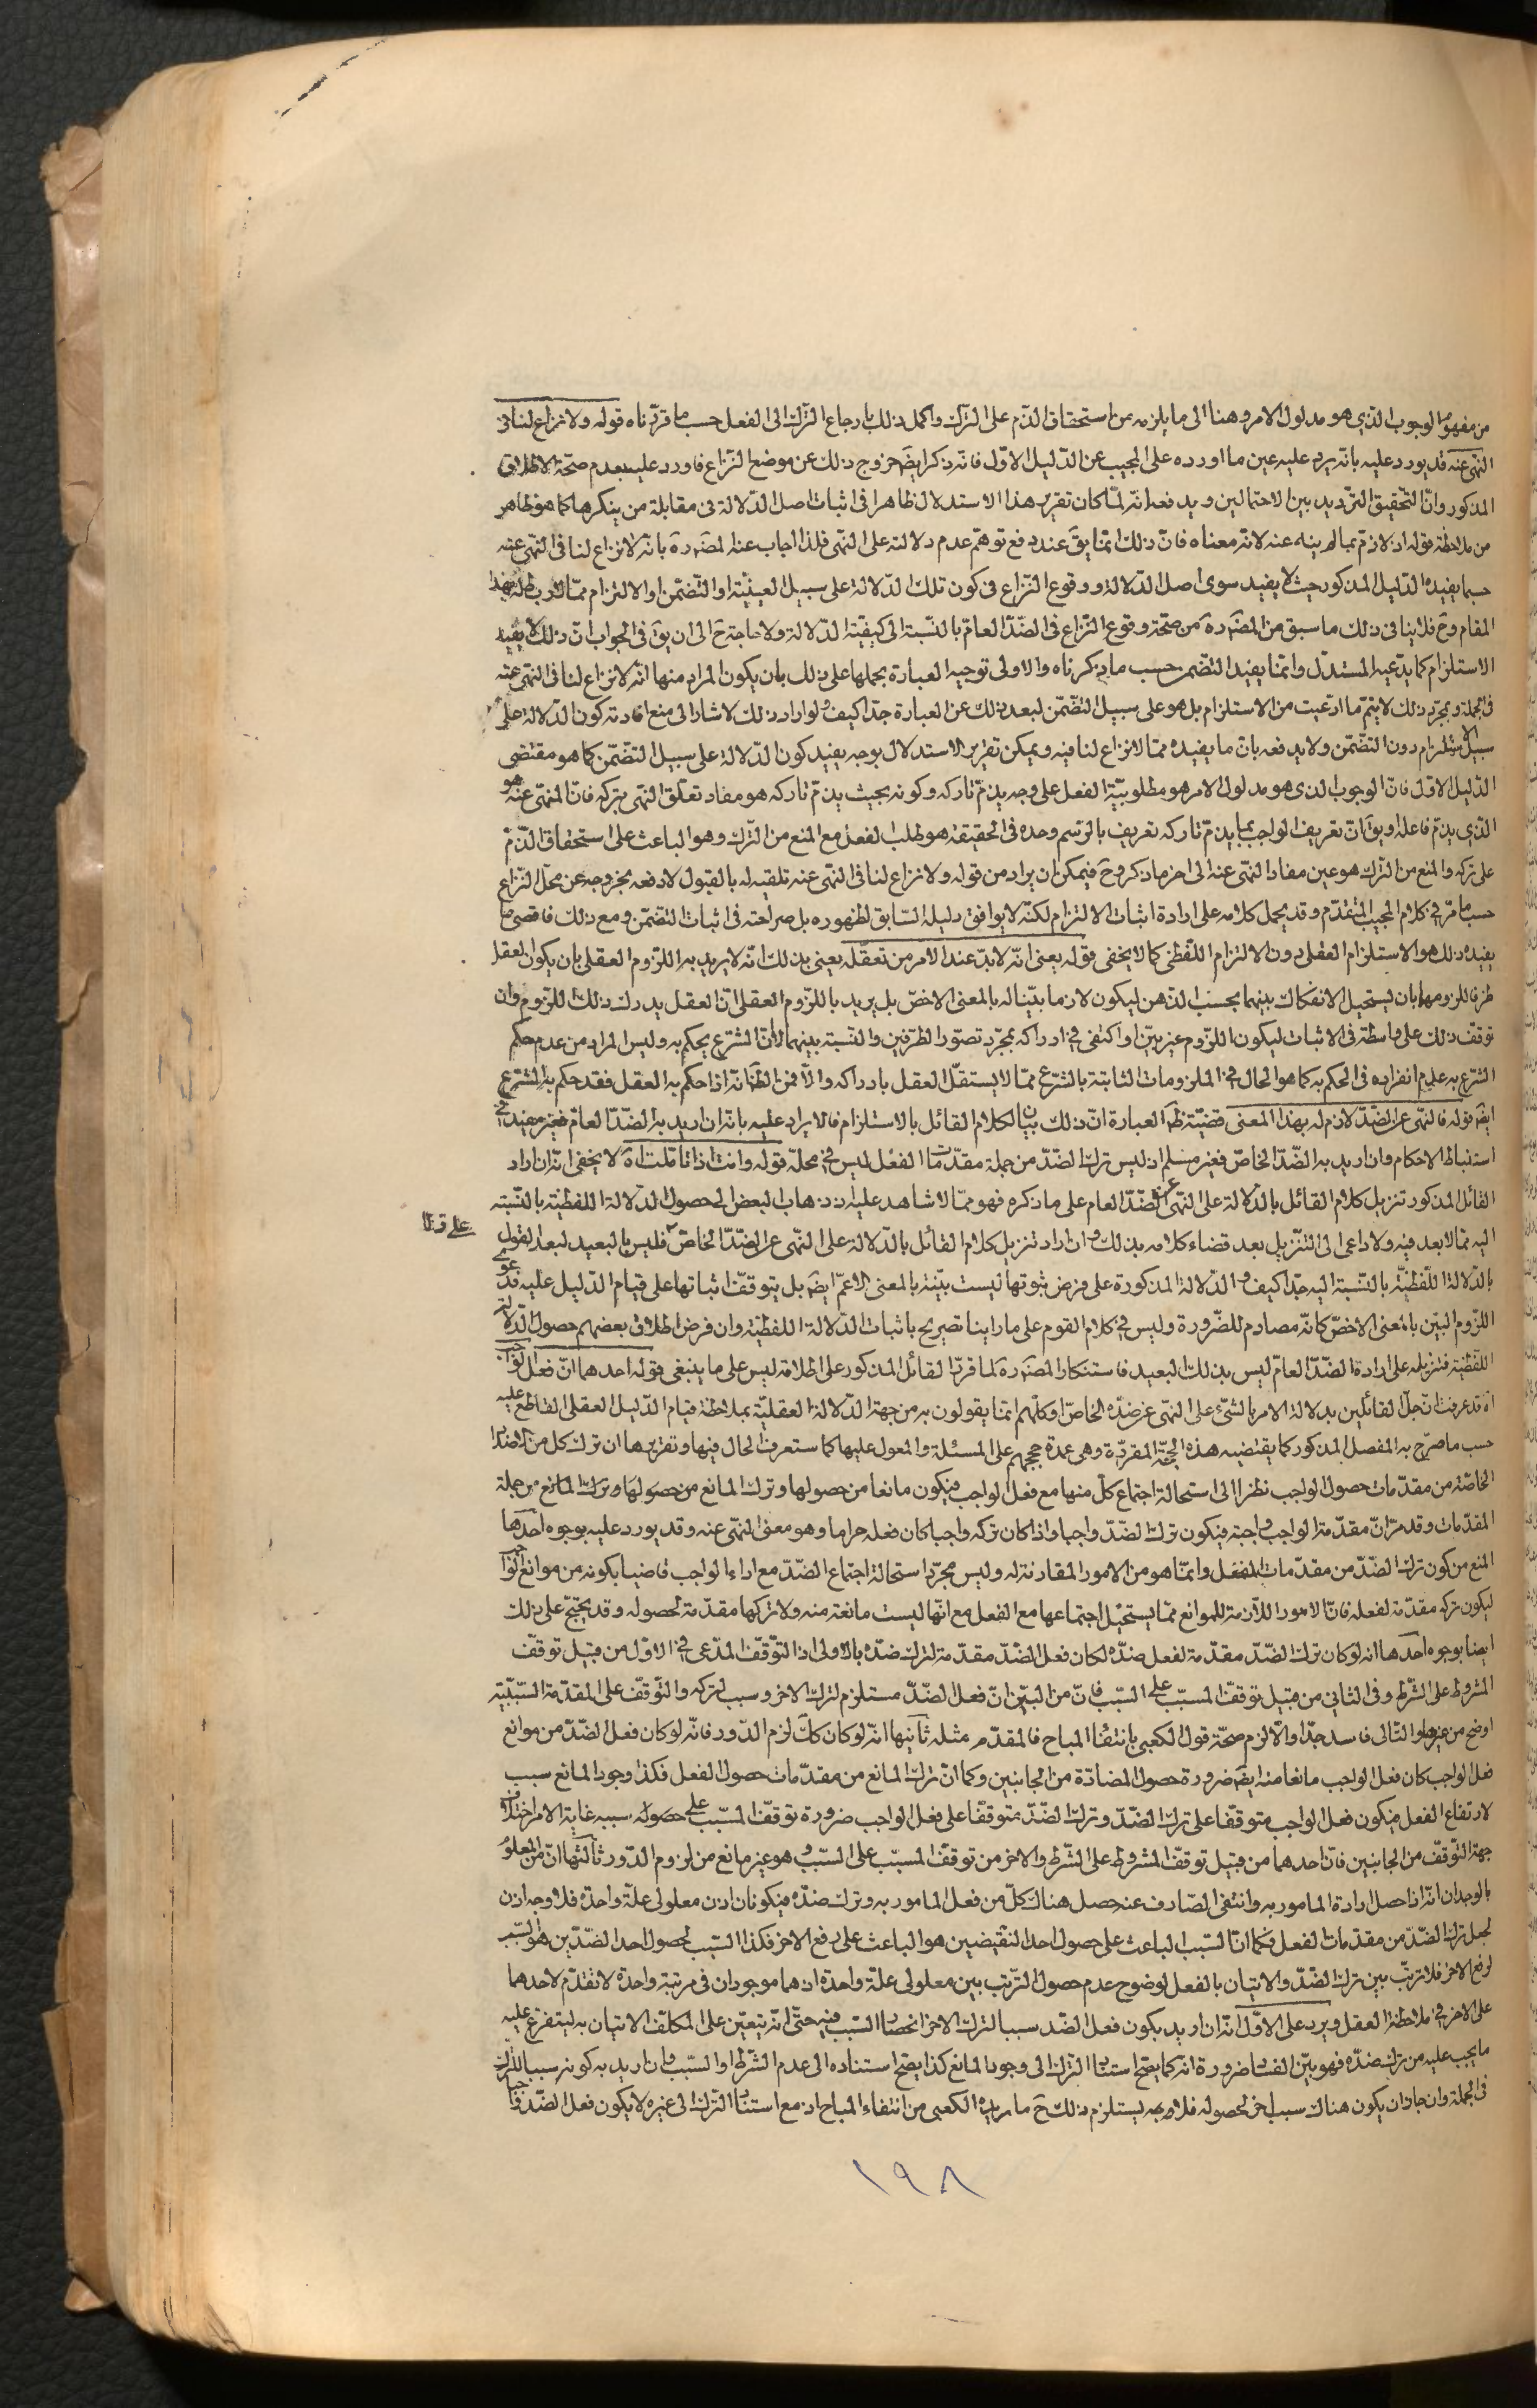 من مفهوم الوجوب الذي هو مدلول الامر وهنا الى ما يلزمه من استحقاق الذم على الترك واكمل ذلك بارجاع الترك الى الفعل حسب ما قررناه قوله ولا نزاع لنا فى
النهى عنه قد يورد عليه بانه يرد عليه عين ما اورده على المجيب عن الدليل الاول فانه ذكر ايضَ خروج ذلك عن موضع النزاع فاورد عليه بعدم صحة الاطلاق
المذكور وانّ التحقيق الترديد بين الاحتمالين ويدفعه انه لمّا كان تقرير هذا الاستدلال ظاهرا فى اثبات اصل الدلالة فى مقابلة من ينكرها كما هو ظاهر
من ملاحظة قوله اذ لا ذم بما لم ينه عنه لانه معناه فانّ ذلك انما يقَ عند دفع توهم عدم دلالته على النهى فلذا اجاب عنه المصَ ره بانه لا نزاع لنا فى النهى عنه
حسبما يفيده الدليل المذكور حيث لا يفيد سوى اصل الدلالة ووقوع النزاع فى كون تلك الدلالة على سبيل العينية او التضمن او الالتزام ممّا لا ربط له بهذا
المقام وحَ فلا ينافى ذلك ما سبق من المصَ ره من صحّة وقوع النزاع فى الضدّ العامّ بالنسبة الى كيفيّة الدلالة ولا حاجة حَ الى ان يقَ فى الجواب انّ ذلك لا يفيد
الاستلزام كما يدّعيه المستدلّ وانما يفيد التضمن حسب ما ذكرناه والاولى توجيه العبارة بحملها على ذلك بان يكون المراد منها انه لا نزاع لنا فى النهى عنه
فى الجملة وبمجرّد ذلك لا يتمّ ما ادّعيت من الاستلزام بل هو على سبيل التضمّن لبعد ذلك عن العبارة جدّا كيف ولو اراد ذلك لاشار الى منع افادته كون الدلالة على
سبيل الاستلزام دون التضمّن ولا يدفعه بانّ ما يفيده ممّا لا نزاع لنا فيه ويمكن تقرير الاستدلال بوجه يفيد كون الدلالة على سبيل التضمّن كما هو مقتضى
الدليل الاوّل فانّ الوجوب الذى هو مدلول الامر هو مطلوبيّة الفعل على وجه يذمّ تاركه وكونه بحيث يذمّ تاركه هو مفاد تعلّق النهى بتركه فانّ المنهى عنه هو
الذى يذمّ فاعله او يقَ انّ تعريف الواجب بما يذمّ تاركه تعريف بالرسم وحده فى الحقيقة هو طلب الفعل مع المنع من الترك وهو الباعث على استحقاق الذمّ
على تركه والمنع من الترك هو عين مفاد النهى عنه الى اخر ما ذكر وحَ فيمكن ان يراد من قوله ولا نزاع لنا فى النهى عنه تلقيه له بالقبول لا دفعه بخروجه عن محلّ النزاع
حسب ما مرّ فى كلام المجيب المتقدّم وقد يحمل كلامه على ارادة اثبات الالتزام لكنّه لا يوافق دليله السّابق لظهوره بل صراحته فى اثبات التضمّن ومع ذلك فاقصى ما
يفيده ذلك هو الاستلزام العقلى دون الالتزام اللّفظى كما لا يخفى قوله يعنى انّه لا بدّ عند الامر من تعقّله يعنى بذلك انّه لا يريد به اللزوم العقلى بان يكون العقل
ظرفا للزومهما بان يستحيل الانفكاك بينهما بحسب الذهن ليكون لازما بيّنا له بالمعنى الاخصّ بل يريد باللزوم العقلى انّ العقل يدرك ذلك اللزوم وان
توقف ذلك على واسطة فى الاثبات ليكون اللزوم غير بيّن او اكتفى فى ادراكه بمجرّد تصوّر الطرفين والنسبة بينهما لا انّ الشرع يحكم به وليس المراد من عدم حكم
الشرع به عدم انفراده فى الحكم به كما هو الحال فى الملزومات الثابتة بالشرع ممّا لا يستقلّ العقل بادراكه والّا فمن الظَ انّه اذا حكم به العقل فقد حكم به الشرع
ايضَ قوله فالنهى عن الضدّ لازم له بهذا المعنى قضيّة ظَ العبارة انّ ذلك بيان لكلام القائل بالاستلزام فالايراد عليه بانّه ان اريد به الضدّ العامّ فغير مفيد فى
استنباط الاحكام وان اريد به الضدّ الخاصّ فغير مسلم اذ ليس ترك الضدّ من جملة مقدّمات الفعل ليس فى محلّه قوله وانت اذا تأمّلت آه لا يخفى انّه ان اراد
القائل المذكور تنزيل كلام القائل بالدلالة على النهى عن الضدّ العام على ما ذكره فهو ممّا لا شاهد عليه اذ ذهاب البعض الى حصول الدلالة اللفظية بالنسبة
اليه ممّا لا بعد فيه ولا داعى الى التنزيل بعد قضاء كلامه بذلك وان اراد تنزيل كلام القائل بالدّلالة على النهى عن الضدّ الخاصّ فليس بالبعيد لبعد القول
بالدلالة اللّفظيّة بالنسبة اليه جدّا كيف والدّلالة المذكورة على فرض ثبوتها ليست بيّنة بالمعنى الاعمّ ايضَ بل يتوقّف اثباتها على قيام الدليل عليه فدعوى
اللزوم البيّن بالمعنى الاخصّ كانّه مصادم للضّرورة وليس فى كلام القوم على ما راينا تصريح باثبات الدلالة اللفظيّة وان فرض اطلاق بعضهم حصول الدّلالة
اللّفظيّة فتنزيله على ارادة الضدّ العامّ ليس بذلك البعيد فاستنكار المصَ ره لما قرّره القائل المذكور على اطلاقه ليس على ما ينبغى قوله احدهما انّ فعل الواجب
آه قد عرفت انّ جلّ القائلين بدلالة الامر بالشئ على النهى عن ضدّه الخاصّ او كلّهم انما يقولون به من جهة الدّلالة العقليّة بملاحظة قيام الدليل العقلى القاطع عليه
حسب ما صرّح به المفصل المذكور كما يقتضيه هذه الحجّة المقرّرة وهى عمدة حججهم على المسئلة والمعول عليها كما ستعرف الحال فيها وتقريرها ان ترك كل من الاضداد
الخاصّة من مقدّمات حصول الواجب نظرا الى استحالة اجتماع كلّ منها مع فعل الواجب فيكون مانعا من حصولها وترك المانع من حصولها وترك المانع من جملة
المقدّمات وقد مرّ انّ مقدّمة الواجب واجبة فيكون ترك الضدّ واجبا واذا كان تركه واجبا كان فعله حراما وهو معنى النّهى عنه وقد يورد عليه بوجوه احدها
المنع من كون ترك الضدّ من مقدّمات الفعل وانّما هو من الامور المقارنة له وليس مجرّد استحالة اجتماع الضدّ مع اداء الواجب قاضيا بكونه من موانع الواجب
ليكون تركه مقدّمة لفعله فانّ الامور اللّازمة للموانع ممّا يستحيل اجتماعها مع الفعل مع انّها ليست مانعة منه ولا تركها مقدّمة لحصوله وقد يحتجّ على ذلك
ايضا بوجوه احدها انه لو كان ترك الضدّ مقدّمة لفعل ضدّه لكان فعل الضدّ مقدّمة لترك ضدّه بالاولى اذ التوقّف المدّعى فى الاوّل من قبيل توقّف
المشروط على الشّرط وفى الثانى من قبيل توقّف المسبّب على السّبب فانّ من البيّن انّ فعل الضدّ مستلزم لترك الاخر وسبب لتركه والتوقّف على المقدّمة السّببيّة
اوضح من غيرها والتّالى فاسد جدّا والّا لزم صحّة قول الكعبى بانتفاء المباح فالمقدّم مثله ثانيها انّه لو كان كلّ لزم الدّور فانّه لو كان فعل الضدّ من موانع
فعل الواجب كان فعل الواجب مانعا منه ايضَ ضرورة حصول المضادّة من الجانبين وكما انّ ترك المانع من مقدّمات حصول الفعل فكذا وجود المانع سبب
لارتفاع الفعل فيكون فعل الواجب متوقّفا على ترك الضدّ وترك الضدّ متوقّفا على فعل الواجب ضرورة توقّف المسبّب على حصول سببه غاية الامر اختلاف
جهة التوقّف من الجانبين فانّ احدهما من قبيل توقّف المشروط على الشّرط والاخر من توقّف المسبّب على السّبب وهو غير مانع من لزوم الدّور ثالثها انّ من المعلوم
بالوجدان انّه اذا حصل ارادة المامور به وانتفى الصّارف عنه حصل هناك كلّ من فعل المامور به وترك ضدّه فيكونان اذن معلولى علّة واحدة فلا وجه اذن
لجعل ترك الضدّ من مقدّمات الفعل فكما انّ السّبب الباعث على حصول احد النّقيضين هو الباعث على رفع الاخر فكذا السّبب لحصول احد الضدّين هو السّبب
لرفع الاخر فلا ترتّب بين ترك الضّدّ والاتيان بالفعل لوضوح عدم حصول التّرتّب بين معلولى علّة واحدة اذ هما موجودان فى مرتبة واحدة لا تقدّم لاحدهما
على الاخر فى ملاحظة العقل ويرد على الاوّل انّه ان اريد بكون فعل الضدّ سببا لترك الاخر انحصار السّبب فيه حتّى انّه يتعيّن على المكلّف الاتيان به ليتفرع عليه
ما يجب عليه من ترك ضدّه فهو بيّن الفساد ضرورة انّه كما يصحّ استناد الترك الى وجود المانع كذا يصحّ استناده الى عدم الشّرط او السّبب وان اريد به كونه سببا للترك
فى الجملة وان جاز ان يكون هناك سبب اخر لحصوله فلا وجه يستلزم ذلك حَ ما يريده الكعبى من انتفاء المباح اذ مع استناد الترك الى غيره لا يكون فعل الضدّ واجبا
١٩٨